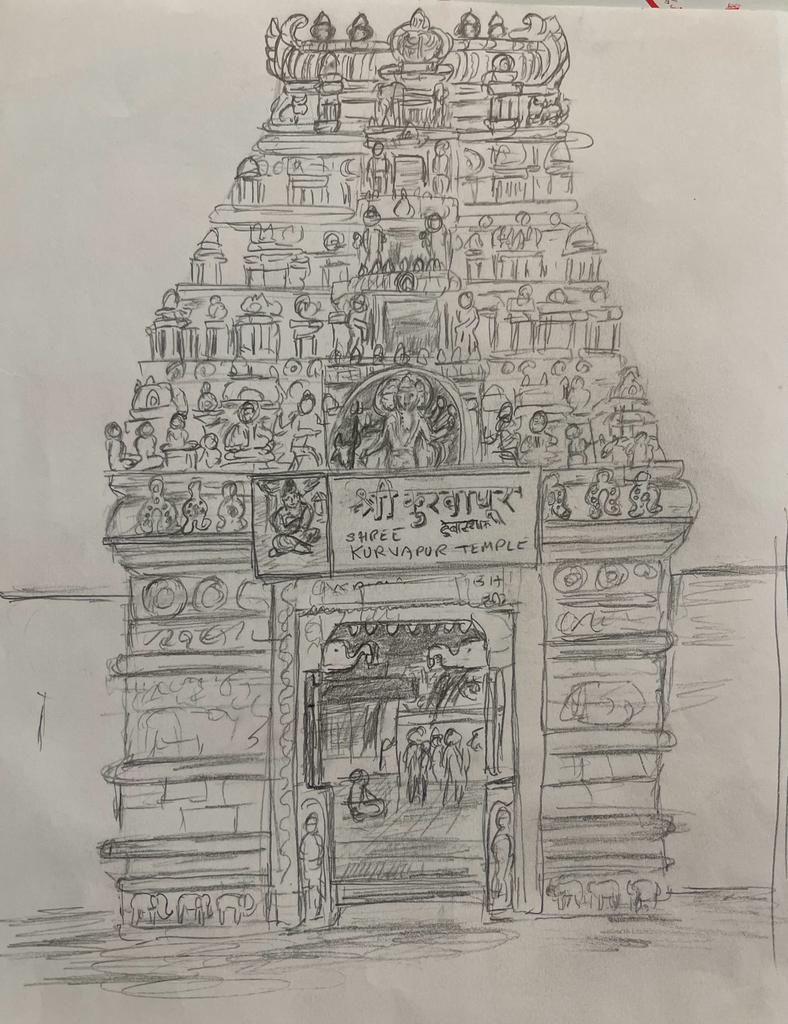 श्री कुरवापूर
देवस्थान
SHREE
KURVAPUR TEMPLE